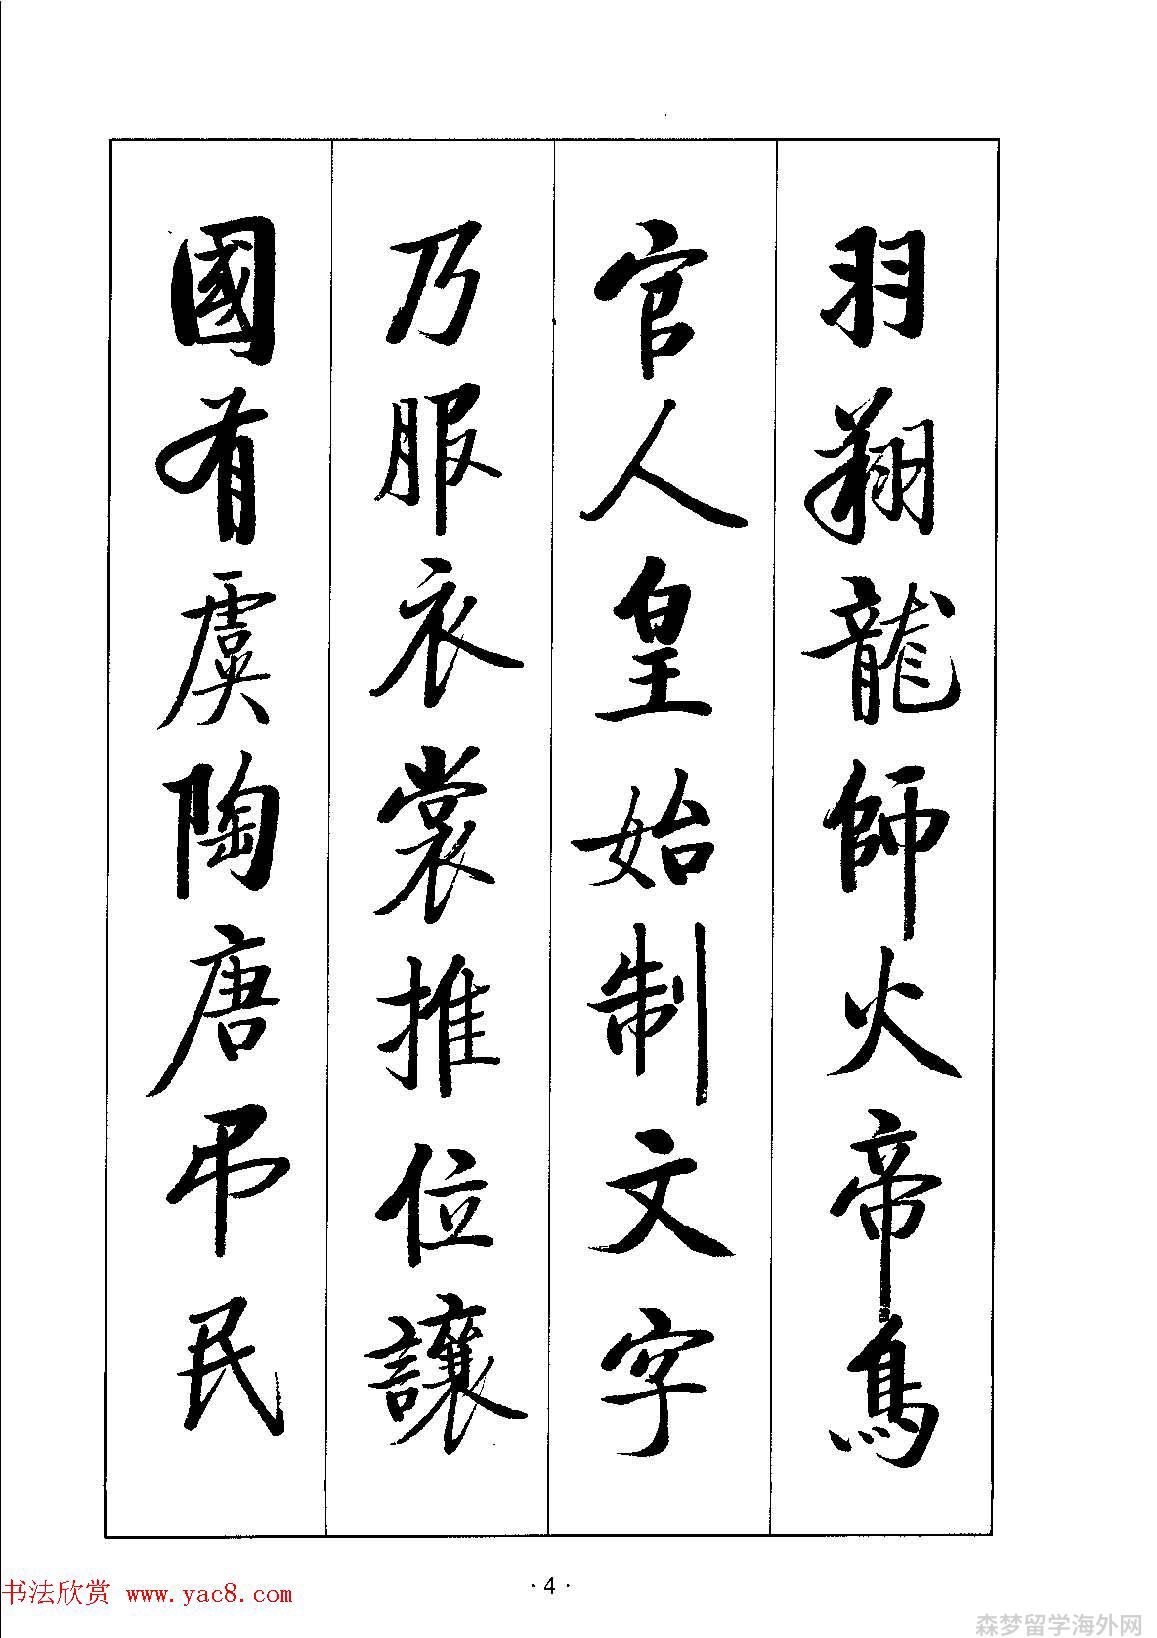 羽翔龍師火帝鳥
官人皇始制文字
乃服衣裳推位讓
國有虞陶唐弔民
·4·
书法欣赏 www.yac8.com
森梦留学海外网